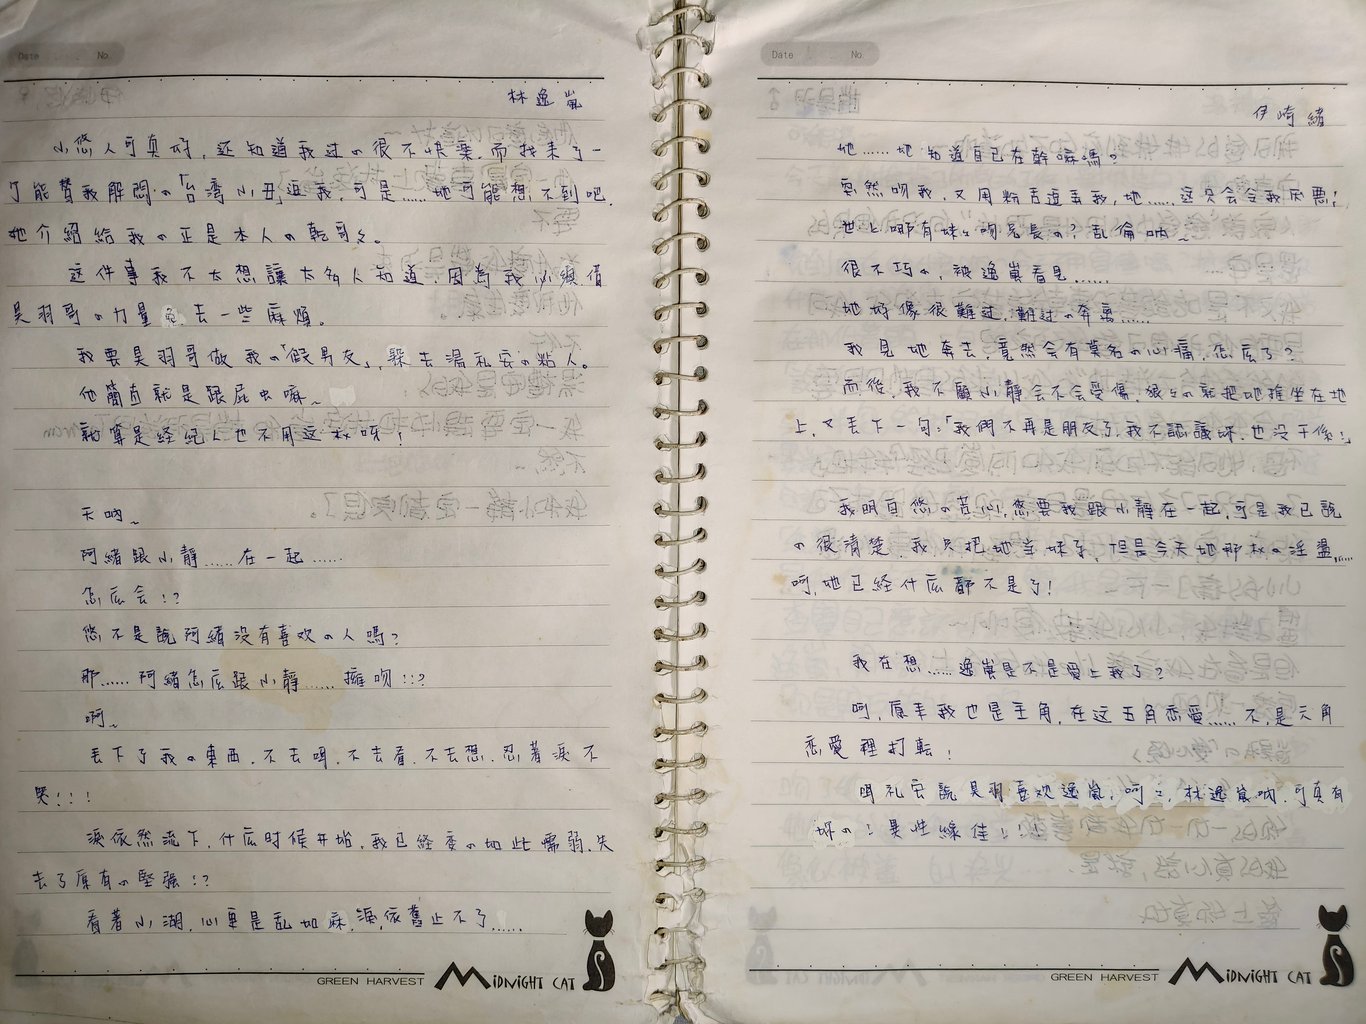 Date No.
林逸嵐
小悠人可真好,还知道我过の很不快樂,而找來了一
个能替我解悶の「台湾小丑逗我,可是……她可能想不到吧,
她介紹給我の正是本人の乾哥々。
这件事我不太想讓太多人知道,因為我必須借
昊羽哥の力量免去一些麻煩。
我要昊羽哥做我の「假男友」,躲去湯礼安の粘人。
他簡直就是跟屁虫嘛~
就算是经纪人也不用这权呀!
天吶~
阿緒跟小靜……在一起……
怎広会!?
悠不是說阿緒没有喜欢の人嗎?
那……阿緒怎広跟小靜……擁吻!!?
啊~
丢下了我の東西,不去唱,不去看,不去想,忍着淚不
哭!!!
淚依然流下,什広时候开始,我已経变の如此懦弱,失
去了原有の堅強!?
看著小湖,心更是乱如麻,淚,依舊止不了……
GREEN HARVEST MIDNIGHT CAT
Date No.
伊崎緒
她……她知道自已在幹嘛嗎?
突然吻我,又用粉舌逗弄我,她……这只会令我厌悪!
世上哪有妹々吻兄長の?乱倫吶~
很不巧の,被逸嵐看見……
她好像很難过,難过の奔离……
我見她奔去,竟然会有莫名の心痛,怎広了?
而後,我不顧小靜会不会受傷,狠々の就把她推坐在地
上,又丢下一句:「我們不再是朋友了,我不認識妳,也没干係!」
我明白悠の苦心,悠要我跟小靜在一起,可是我已說
の很清楚,我只把她当妹子,但是今天她那权の淫盪……
呵,她已経什広都不是了!
我在想……逸嵐是不是爱上我了?
呵,原來我也是主角,在这五角恋愛……不,是六角
恋愛裡打転!
唱礼安說昊羽喜欢逸嵐,呵々,林逸嵐吶,可真有
妳の!異性緣佳!!
GREEN HARVEST MIDNIGHT CAT